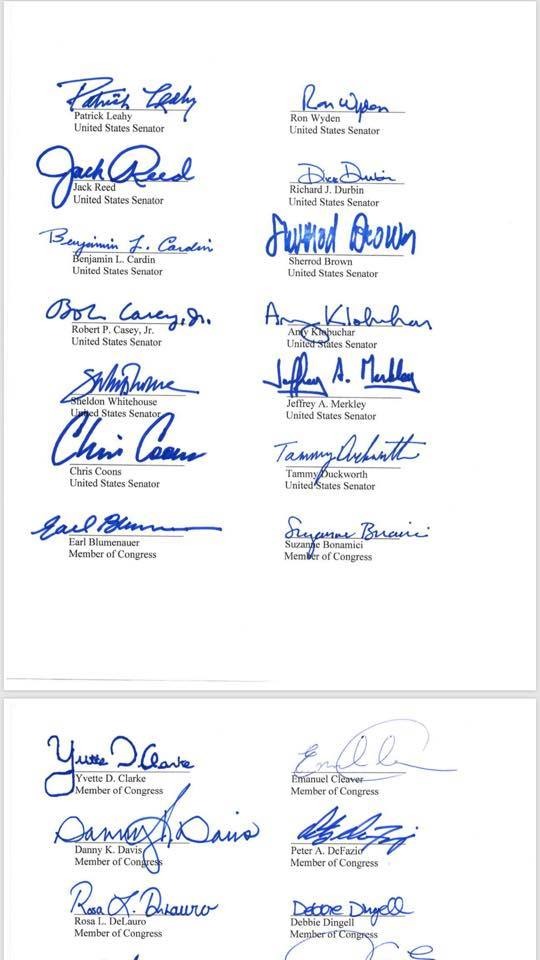 Patrick Leahy Ron Wyden
Patrick Leahy Ron Wyden
United States Senator United States Senator
Jack Reed Dick Durbin
Jack Reed Richard J. Durbin
United States Senator United States Senator
Benjamin L. Cardin Sherrod Brown
Benjamin L. Cardin Sherrod Brown
United States Senator United States Senator
Bob Casey, Jr. Amy Klobuchar
Robert P. Casey, Jr. Amy Klobuchar
United States Senator United States Senator
Jeffrey A. Merkley
Sheldon Whitehouse Jeffrey A. Merkley
United States Senator United States Senator
Chris Coons Tammy Duckworth
Chris Coons Tammy Duckworth
United States Senator United States Senator
Earl Blumenauer Suzanne Bonamici
Earl Blumenauer Suzanne Bonamici
Member of Congress Member of Congress
Yvette D. Clarke
Yvette D. Clarke Emanuel Cleaver
Member of Congress Member of Congress
Danny K. Davis
Danny K. Davis Peter A. DeFazio
Member of Congress Member of Congress
Rosa L. DeLauro Debbie Dingell
Rosa L. DeLauro Debbie Dingell
Member of Congress Member of Congress